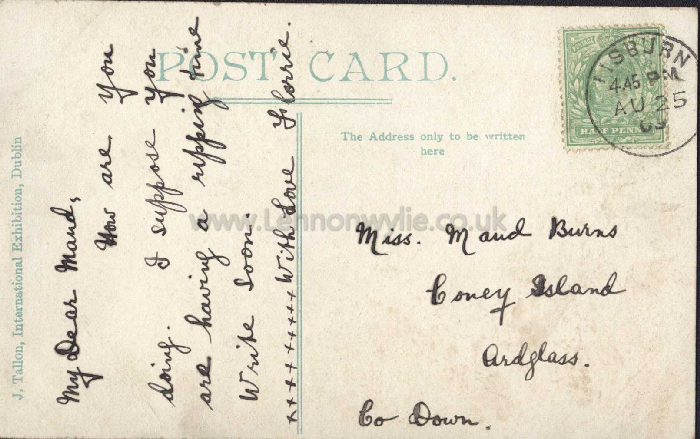 POST CARD.
J. Tallon, International Exhibition, Dublin
The Address only to be written
here
HALF PENNY
LISBURN
4.45 PM
AU 25
My Dear Maud,
How are you
doing. I suppose you
are having a ripping time
Write soon.
With Love
Miss. Maud Burns
Coney Island
Ardglass.
Co Down.
www.Lennonwylie.co.uk